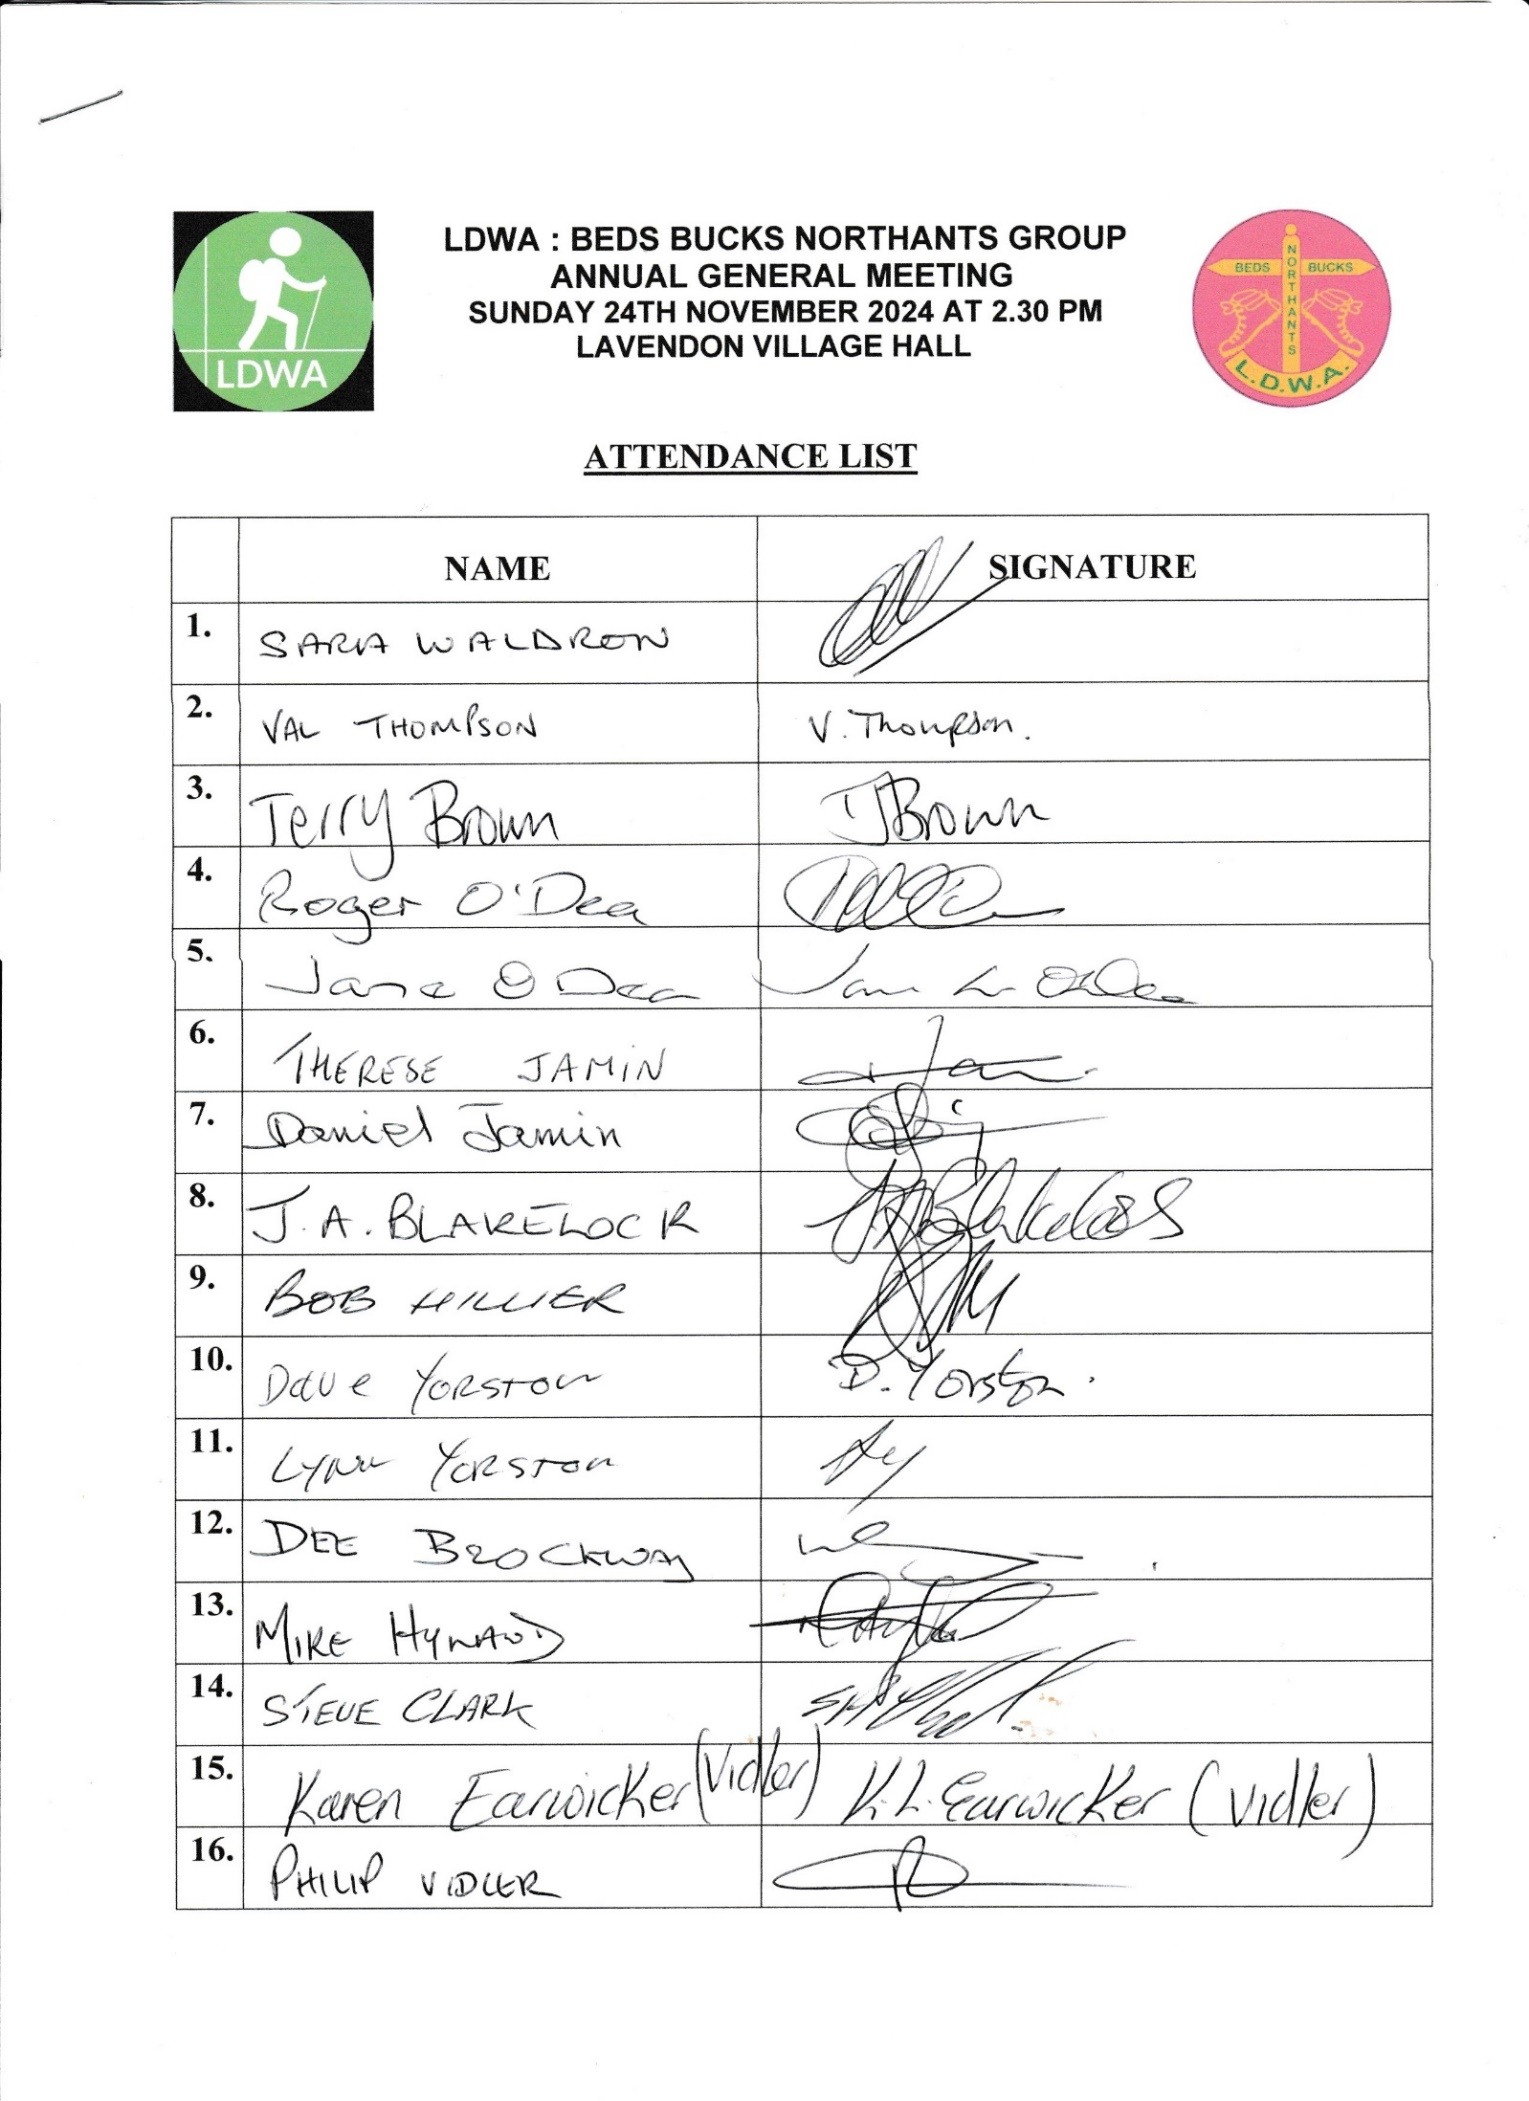 LDWA : BEDS BUCKS NORTHANTS GROUP
ANNUAL GENERAL MEETING
SUNDAY 24TH NOVEMBER 2024 AT 2.30 PM
LAVENDON VILLAGE HALL
LDWA
BEDS BUCKS
NORTHANTS
L.D.W.A.
ATTENDANCE LIST
NAME SIGNATURE
1. SARA WALDRON
2. VAL THOMPSON V. Thompson.
3. Terry Brown TJBrown
4. Roger O'Dea
5. Jane O Dea
6. THERESE JAMIN
7. Daniel Jamin
8. J.A. BLAKELOCK
9. BOB HILLIER
10. Dave YORSTON D. Yorston.
11. LYNN YORSTON
12. DEE BROCKWAY
13. MIKE HYNARD
14. STEVE CLARK
15. Karen Earwicker (Vidler) K.L. Earwicker (Vidler)
16. PHILIP VIDLER